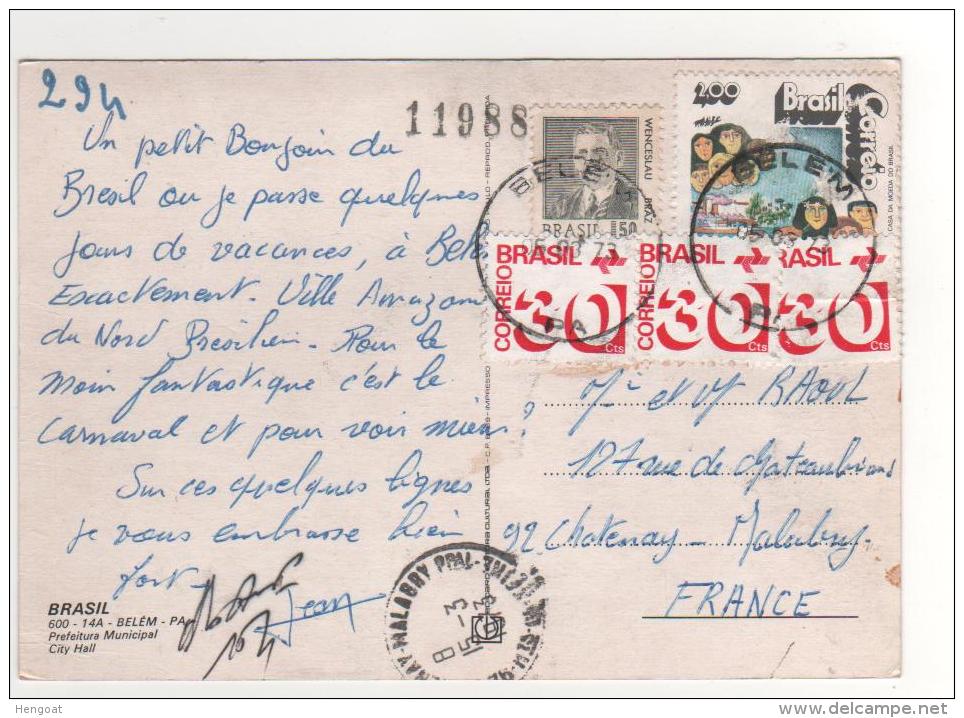 294
11988
Un petit Bonjour du
Bresil ou je passe quelques
jours de vacances, à Belem
Exactement. Ville Amazon
du Nord Bresilien. Pour le
moin fantastique c'est le
Carnaval et pour voir mieux?
Sur ces quelques lignes
je vous embrasse bien
fort.
Jean
BRASIL
600 - 14A - BELÉM - PA
Prefeitura Municipal
City Hall
WENCESLAU BRÁZ
BRASIL 50
2,00 Brasil Correio
CASA DA MOEDA DO BRASIL
BELÉM
05 03 73
PA
BELÉM
BRASIL CORREIO 30 Cts
BRASIL CORREIO 30 Cts
BRASIL 30 Cts
Mr et Mme RAOUL
127 rue de Chateaubriand
92 Chatenay-Malabry
FRANCE
MALABRY PPAL
15 - 3
Hengoat
www.delcampe.net